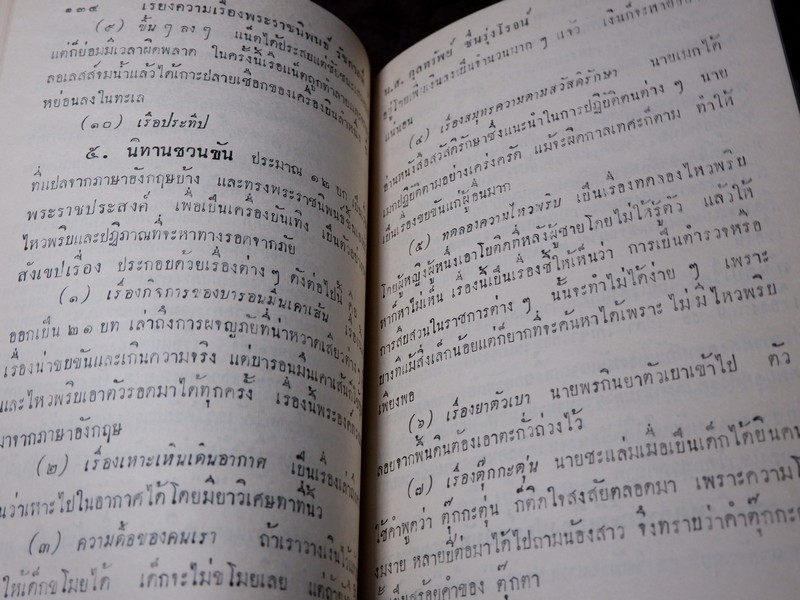 ๑๓๔ เรียงความเรื่องพระราชนิพนธ์
(๙) ขึ้น ๆ ลง ๆ แน็ดได้ประสบแต่
แต่ก็ย่อมมีเวลาผิดพลาด ในครั้งนี้เรือแน็ดถูกทำลาย
ลอเลสส์จมน้ำแล้วได้เกาะปลายเชือกของเครื่องบินลำหนึ่ง
หย่อนลงในทะเล
(๑๐) เรือประทีป
๕. นิทานชวนขัน ประมาณ ๑๒ บท
ที่แปลจากภาษาอังกฤษบ้าง และทรงพระราชนิพนธ์ขึ้น
พระราชประสงค์ เพื่อเป็นเครื่องบันเทิง เป็นตัวอย่าง
ไหวพริบและปฏิภาณที่จะหาทางรอดจากภัย
สังเขปเรื่อง ประกอบด้วยเรื่องต่างๆ ดังต่อไปนี้ คือ
(๑) เรื่องกิจการของบารอนมึนเคาเส็น
ออกเป็น ๒๑ บท เล่าถึงการผจญภัยที่น่าหวาดเสียวต่าง
เรื่องน่าขบขันและเกินความจริง แต่บารอนมึนเคาเส็นก็
และไหวพริบเอาตัวรอดมาได้ทุกครั้ง เรื่องนี้พระองค์
มาจากภาษาอังกฤษ
(๒) เรื่องเหาะเหินเดินอากาศ เป็นเรื่อง
นว่าเหาะไปในอากาศได้โดยมียาวิเศษทาที่นิ้ว
(๓) ความดื้อของคนเรา ถ้าเราวางเงินไว้
ให้เด็กขโมยได้ เด็กจะไม่ขโมยเลย แต่ถ้า
น.ส. ดุลทรัพย์ ชื่นรุ่งโรจน์
อยู่โดยเพิ่มเงินลงเป็นจำนวนมาก ๆ แล้ว เงินก็จะหาย
แน่นอน
(๔) เรื่องสมุทรความตามสวัสดิรักษา นายเมกได้
อ่านหนังสือสวัสดิรักษาซึ่งแนะนำในการปฏิบัติตนต่าง ๆ นาย
เมกปฏิบัติตามอย่างเคร่งครัด แม้จะผิดกาลเทศะก็ตาม ทำให้
เป็นเรื่องขบขันแก่ผู้อื่นมาก
(๕) ทดลองความไหวพริบ เป็นเรื่องทดลองไหวพริบ
โดยผู้หญิงผู้หนึ่งเอาโบติดที่หลังผู้ชายโดยไม่ให้รู้ตัว แล้วให้
หาก็หาไม่เห็น เรื่องนี้เป็นเรื่องชี้ให้เห็นว่า การเป็นตำรวจหรือ
การสืบสวนในราชการต่าง ๆ นั้นจะทำไม่ได้ง่าย ๆ เพราะ
บางทีแม้สิ่งเล็กน้อยแต่ก็ยากที่จะค้นหาได้เพราะ ไม่มีไหวพริบ
เพียงพอ
(๖) เรื่องยาตัวเบา นายพรกินยาตัวเบาเข้าไป ตัว
ลอยจากพื้นดินต้องเอาตะกั่วถ่วงไว้
(๗) เรื่องตุ๊กกะตุ่น นายชะแล่มเมื่อเป็นเด็กได้ยินคน
ใช้คำพูดว่า ตุ๊กกะตุ่น ก็ติดใจสงสัยตลอดมา เพราะความ
งมงาย หลายปีต่อมาได้ไปถามน้องสาว จึงทราบว่าคำตุ๊กกะ
เป็นสร้อยคำของ ตุ๊กตา